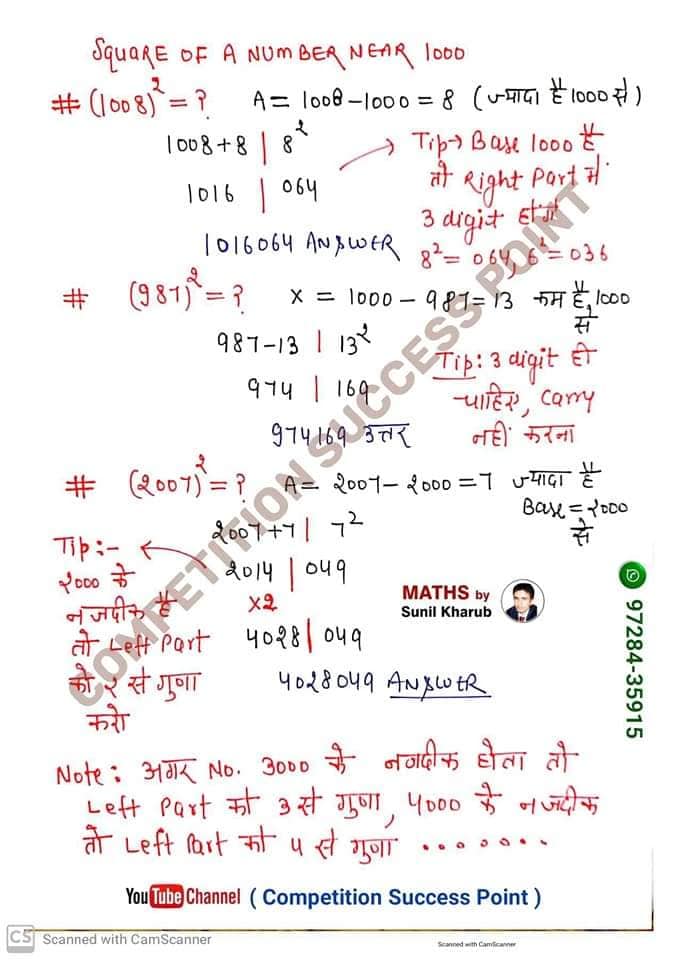 SQUARE OF A NUMBER NEAR 1000
# (1008)² = ? A = 1008 - 1000 = 8 (ज्यादा है 1000 से)
1008+8 | 8²
1016 | 064
1016064 ANSWER
Tip → Base 1000 है
तो Right Part में
3 digit होंगे
8² = 064, 6² = 036
# (987)² = ? X = 1000 - 987 = 13 कम है, 1000 से
987-13 | 13²
974 | 169
974169 उत्तर
Tip: 3 digit ही
चाहिए, Carry
नहीं करना
# (2007)² = ? A = 2007 - 2000 = 7 ज्यादा है
Base = 2000 से
2007+7 | 7²
2014 | 049
×2
4028 | 049
4028049 ANSWER
Tip :-
2000 के
नजदीक है
तो Left Part
को 2 से गुणा
करो
MATHS by
Sunil Kharub
97284-35915
Note: अगर No. 3000 के नजदीक होता तो
Left Part को 3 से गुणा, 4000 के नजदीक
तो Left Part को 4 से गुणा .......
YouTube Channel ( Competition Success Point )
COMPETITION SUCCESS POINT
CS Scanned with CamScanner
Scanned with CamScanner